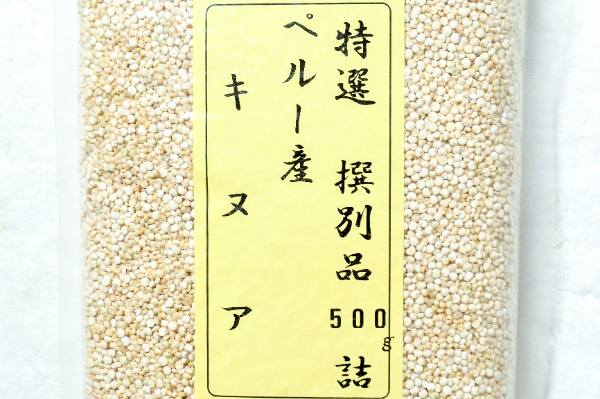 特選 撰別品500g詰
ペルー産
キヌア